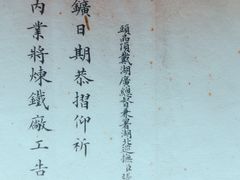 頭品頂戴湖廣總督兼署湖北巡撫臣張
鑛日期恭摺仰祈
內業將煉鐵廠工告